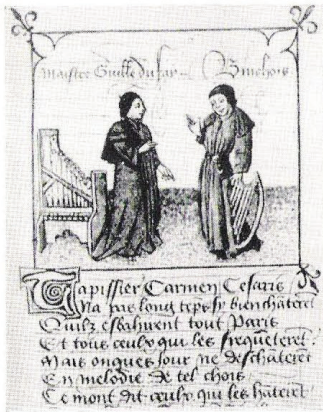 Maistre Guille du fay Binchois
Tapissier Carmen Cesaris
Na pas long teps sy bien chāterēt
Quilz esbahirent tout Paris
Et tous ceulx qui les frequēterēt
Mais onques jour ne deschāterēt
En melodie de tel chois
Ce mont dit ceulx qui les hāterēt